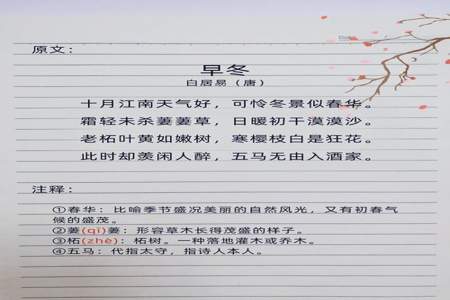 原文：
早冬
白居易（唐）
十月江南天气好，可怜冬景似春华。
霜轻未杀萋萋草，日暖初干漠漠沙。
老柘叶黄如嫩树，寒樱枝白是狂花。
此时却羡闲人醉，五马无由入酒家。
注释：
①春华：比喻季节盛况美丽的自然风光，又有初春气
候的盛茂。
②萋(qī)萋：形容草木长得茂盛的样子。
③柘(zhè)：柘树。一种落地灌木或乔木。
④五马：代指太守，指诗人本人。